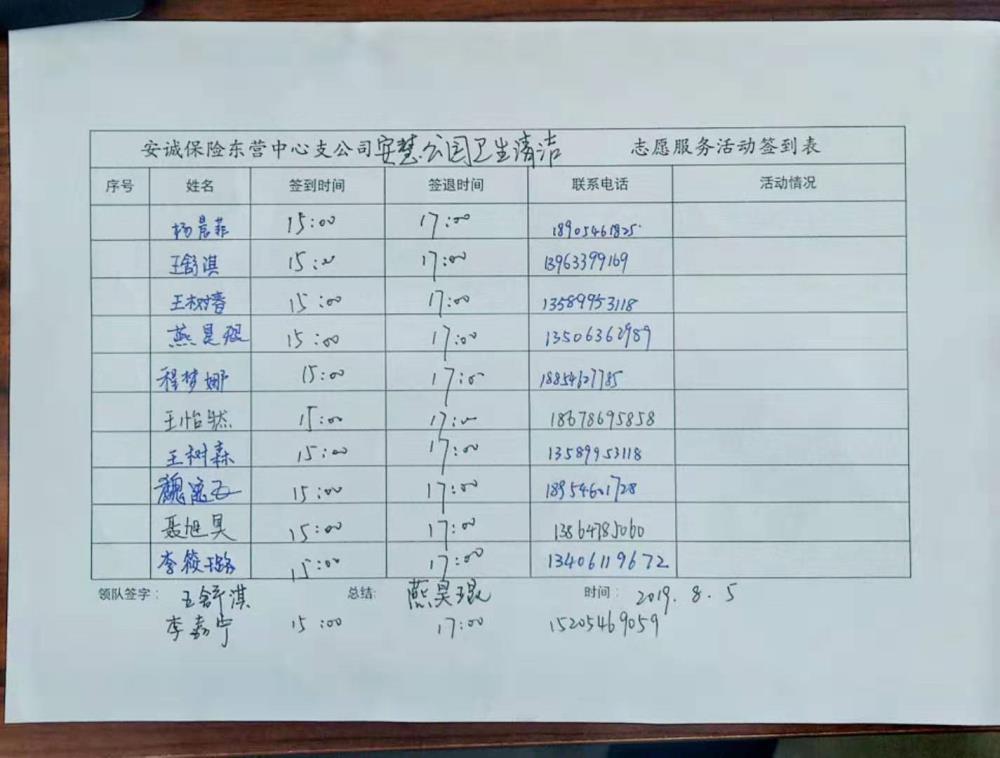 安诚保险东营中心支公司安慧公园卫生清洁 志愿服务活动签到表
序号 姓名 签到时间 签退时间 联系电话 活动情况
杨晨菲 15:00 17:00 18905461825
王舒淇 15:00 17:00 13963399169
王树春 15:00 17:00 13589953118
燕昊琨 15:00 17:00 13506362989
程梦娜 15:00 17:00 18854627785
王怡然 15:00 17:00 18678695858
王树森 15:00 17:00 13589953118
魏 15:00 17:00 18954601728
聂旭昊 15:00 17:00 13864785060
李筱璐 15:00 17:00 13406119672
领队签字: 王舒淇 总结: 燕昊琨 时间: 2019.8.5
李嘉宁 15:00 17:00 15205469059